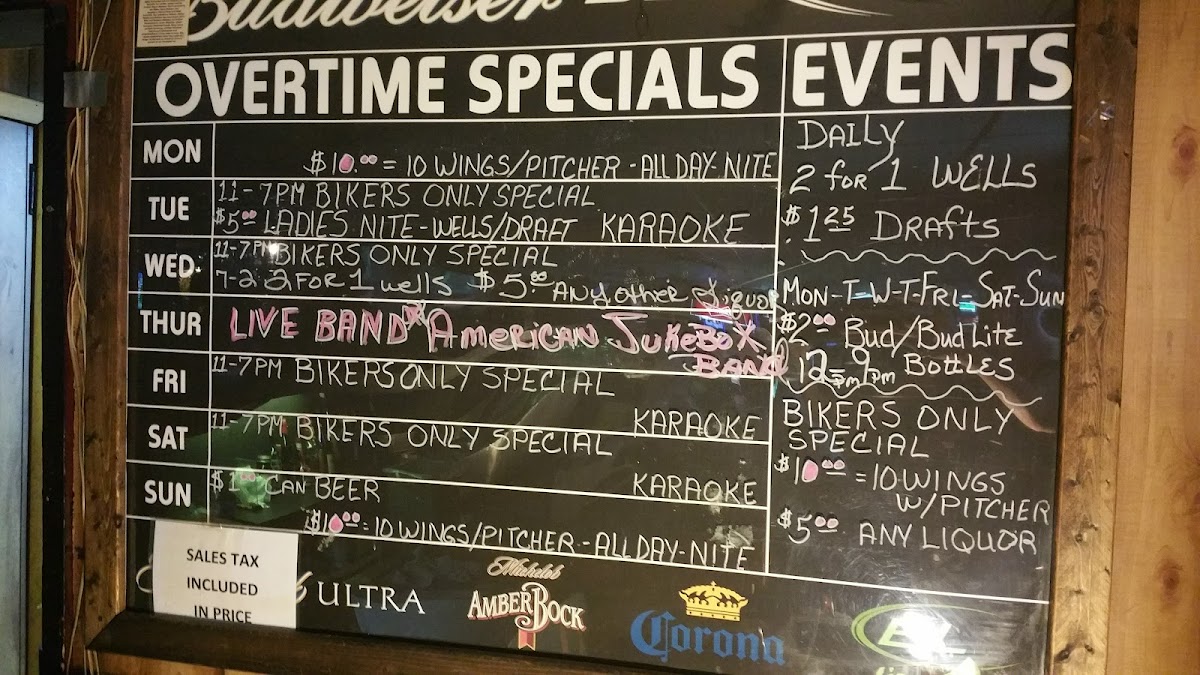 Budweiser
OVERTIME SPECIALS
MON
$10.00 = 10 WINGS/PITCHER - ALL DAY-NITE
TUE
11 - 7PM BIKERS ONLY SPECIAL
$5.00 LADIES NITE - WELLS/DRAFT KARAOKE
WED
11-7PM BIKERS ONLY SPECIAL
7-2 2 FOR 1 wells $5.00 ANY other Liquor
THUR
LIVE BAND American JukeBox
BAND
FRI
11-7PM BIKERS ONLY SPECIAL
KARAOKE
SAT
11-7PM BIKERS ONLY SPECIAL
KARAOKE
SUN
$1.00 CAN BEER
$10.00 = 10 WINGS/PITCHER - ALL DAY-NITE
EVENTS
DAILY
2 for 1 WELLS
$1.25 Drafts
MON-T-W-T-FRI-SAT-SUN
$2.00 Bud/Bud Lite
12pm-9pm Bottles
BIKERS ONLY
SPECIAL
$10.00 = 10 WINGS
W/PITCHER
$5.00 ANY LIQUOR
SALES TAX
INCLUDED
IN PRICE
ULTRA
Michelob
AMBERBOCK
Corona